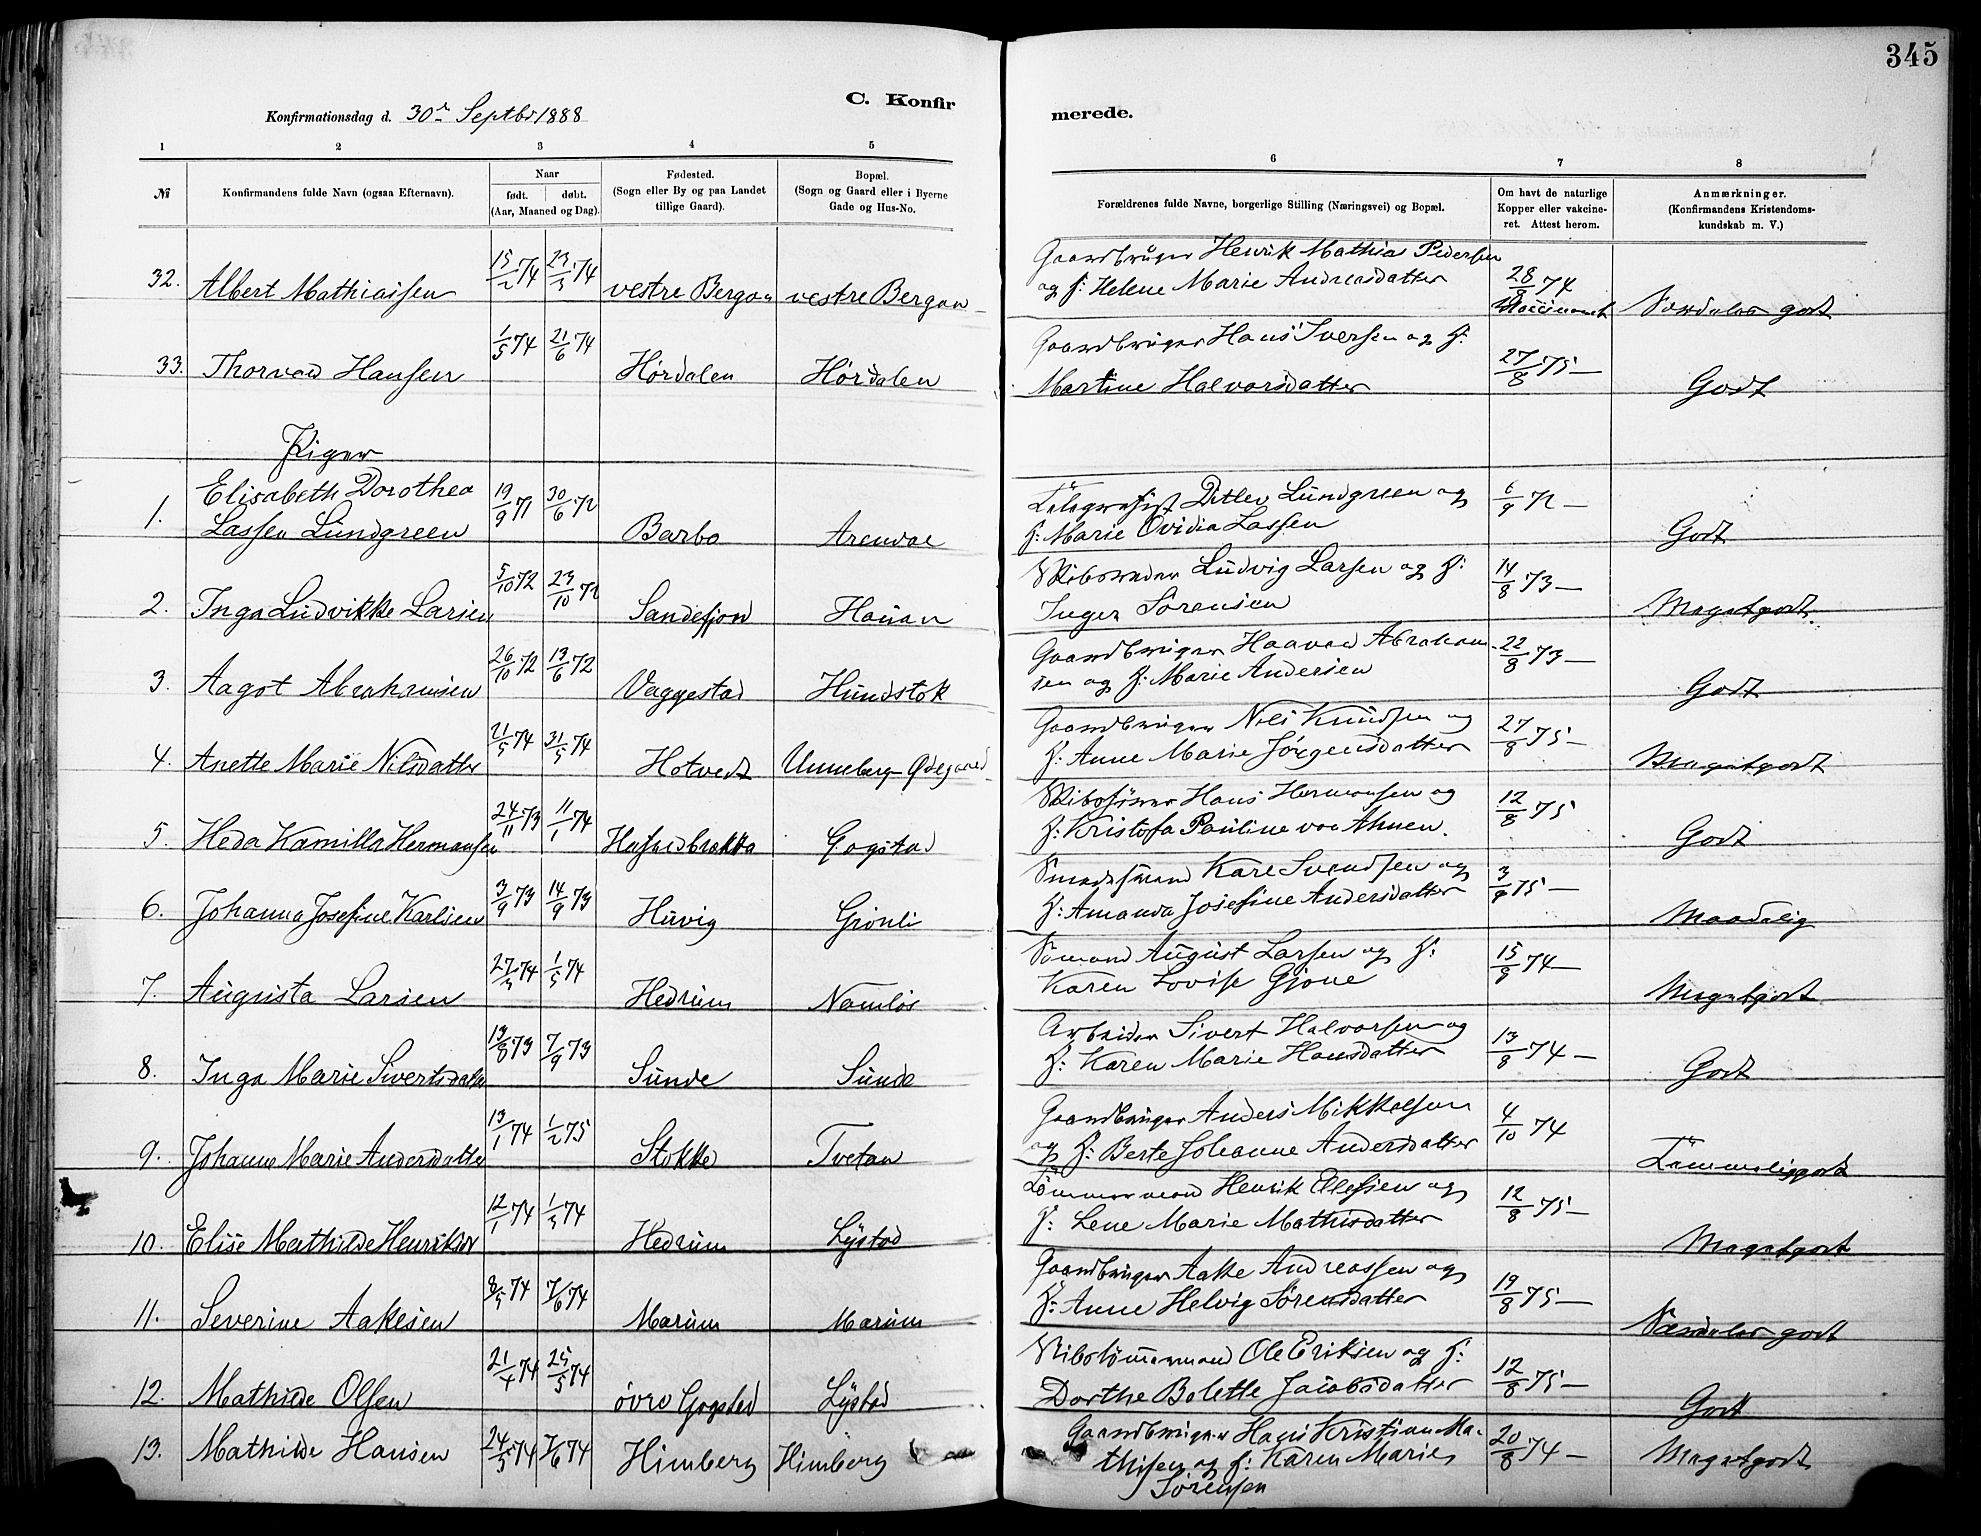 345
C. Konfir
merede.
Konfirmationsdag d. 30te Septbr 1888
1 2 3 4 5 6 7 8
№
Konfirmandens fulde Navn (ogsaa Efternavn).
Naar
født. døbt.
(Aar, Maaned og Dag).
Fødested.
(Sogn eller By og paa Landet
tillige Gaard).
Bopæl.
(Sogn og Gaard eller i Byerne
Gade og Hus-No.
Forældrenes fulde Navne, borgerlige Stilling (Næringsvei) og Bopæl.
Om havt de naturlige
Kopper eller vakcine-
ret. Attest herom.
Anmærkninger.
(Konfirmandens Kristendoms-
kundskab m. V.)
Gaardbruger Henrik Mathias Pedersen
32. Albert Mathiassen 15/2 74 23/3 74 vestre Bergan vestre Bergan og H: Helene Marie Andreasdatter 28/8 74 Særdeles godt
Gaardbruger Hans Iversen og H:
33. Thorvald Hansen 1/5 74 21/6 74 Hørdalen Hørdalen Martine Halvorsdatter 27/8 75 — Godt
Piger
Elisabeth Dorothea Telegrafist Ditlev Lundgreen og
1. Lassen Lundgreen 19/9 71 30/6 72 Barbo Arendal H: Marie Ovidia Lassen 6/9 72 — Godt
Ludvig Larsen og H:
2. Inga Ludvikke Larsen 5/10 72 23/10 72 Sandefjord Hauan Inger Sørensen 14/8 73 — Megetgodt.
Gaardbruger Haavald Abraham
3. Aagot Abrahamsen 26/10 72 13/6 72 Vaggestad Hundstok sen og H: Marie Andersen 22/8 73 — Godt
Gaardbruger Nils Knudsen og
4. Anette Marie Nilsdatter 21/5 74 31/5 74 Hotvedt Unneberg Ødegaard H: Anne Marie Jörgensdatter 27/8 75 — Megetgodt
Hans Hermansen og
5. Hilda Kamilla Hermansen 24/11 73 11/1 74 Gogstad H: Kristofa Pauline von Ahnen. 12/8 75 Godt
Karl Svendsen og
6. Johanna Josefine Karlsen 3/9 73 14/9 73 Huvig Grönli H: Amanda Josefine Andersdatter 3/9 75 — Maadelig
Sömand August Larsen og H:
7. Augusta Larsen 27/3 74 1/5 74 Hedrum Namløs Karen Lovise Gjone 15/9 74 — Megetgodt
Arbeider Sivert Halvorsen og
8. Inga Marie Sivertsdatter 13/8 73 7/9 73 Sunde Sunde H: Karen Marie Hansdatter 13/8 74 — Godt
Gaardbruger Anders Mikkelsen
9. Johanne Marie Andersdatter 13/1 74 1/2 75 Stokke Tvetan og H: Berte Johanne Andersdatter 4/10 74 Temmeliggodt
Tömmermand Henrik Olessen og
10. Elise Mathilde Henriksdr 12/1 74 1/3 74 Hedrum Lystad H: Lene Marie Mathisdatter 12/8 75 — Megetgodt
Gaardbruger Aake Andreassen og
11. Severine Aakesen 8/5 74 7/6 74 Marum Marum H: Anne Helvig Sörensdatter 19/8 75 — Særdeles godt
Skibstömmermand Ole Eriksen og H:
12. Mathilde Olsen 21/4 74 25/5 74 övre Gogstad Lystad Dorthe Bolette Jacobsdatter 12/8 75 — Godt
Gaardbruger Hans Kristian Ma-
13. Mathilde Hansen 24/3 74 7/6 74 Himberg Himberg thisen og H: Karen Marie 20/8 74 — Megetgodt
Sörensen